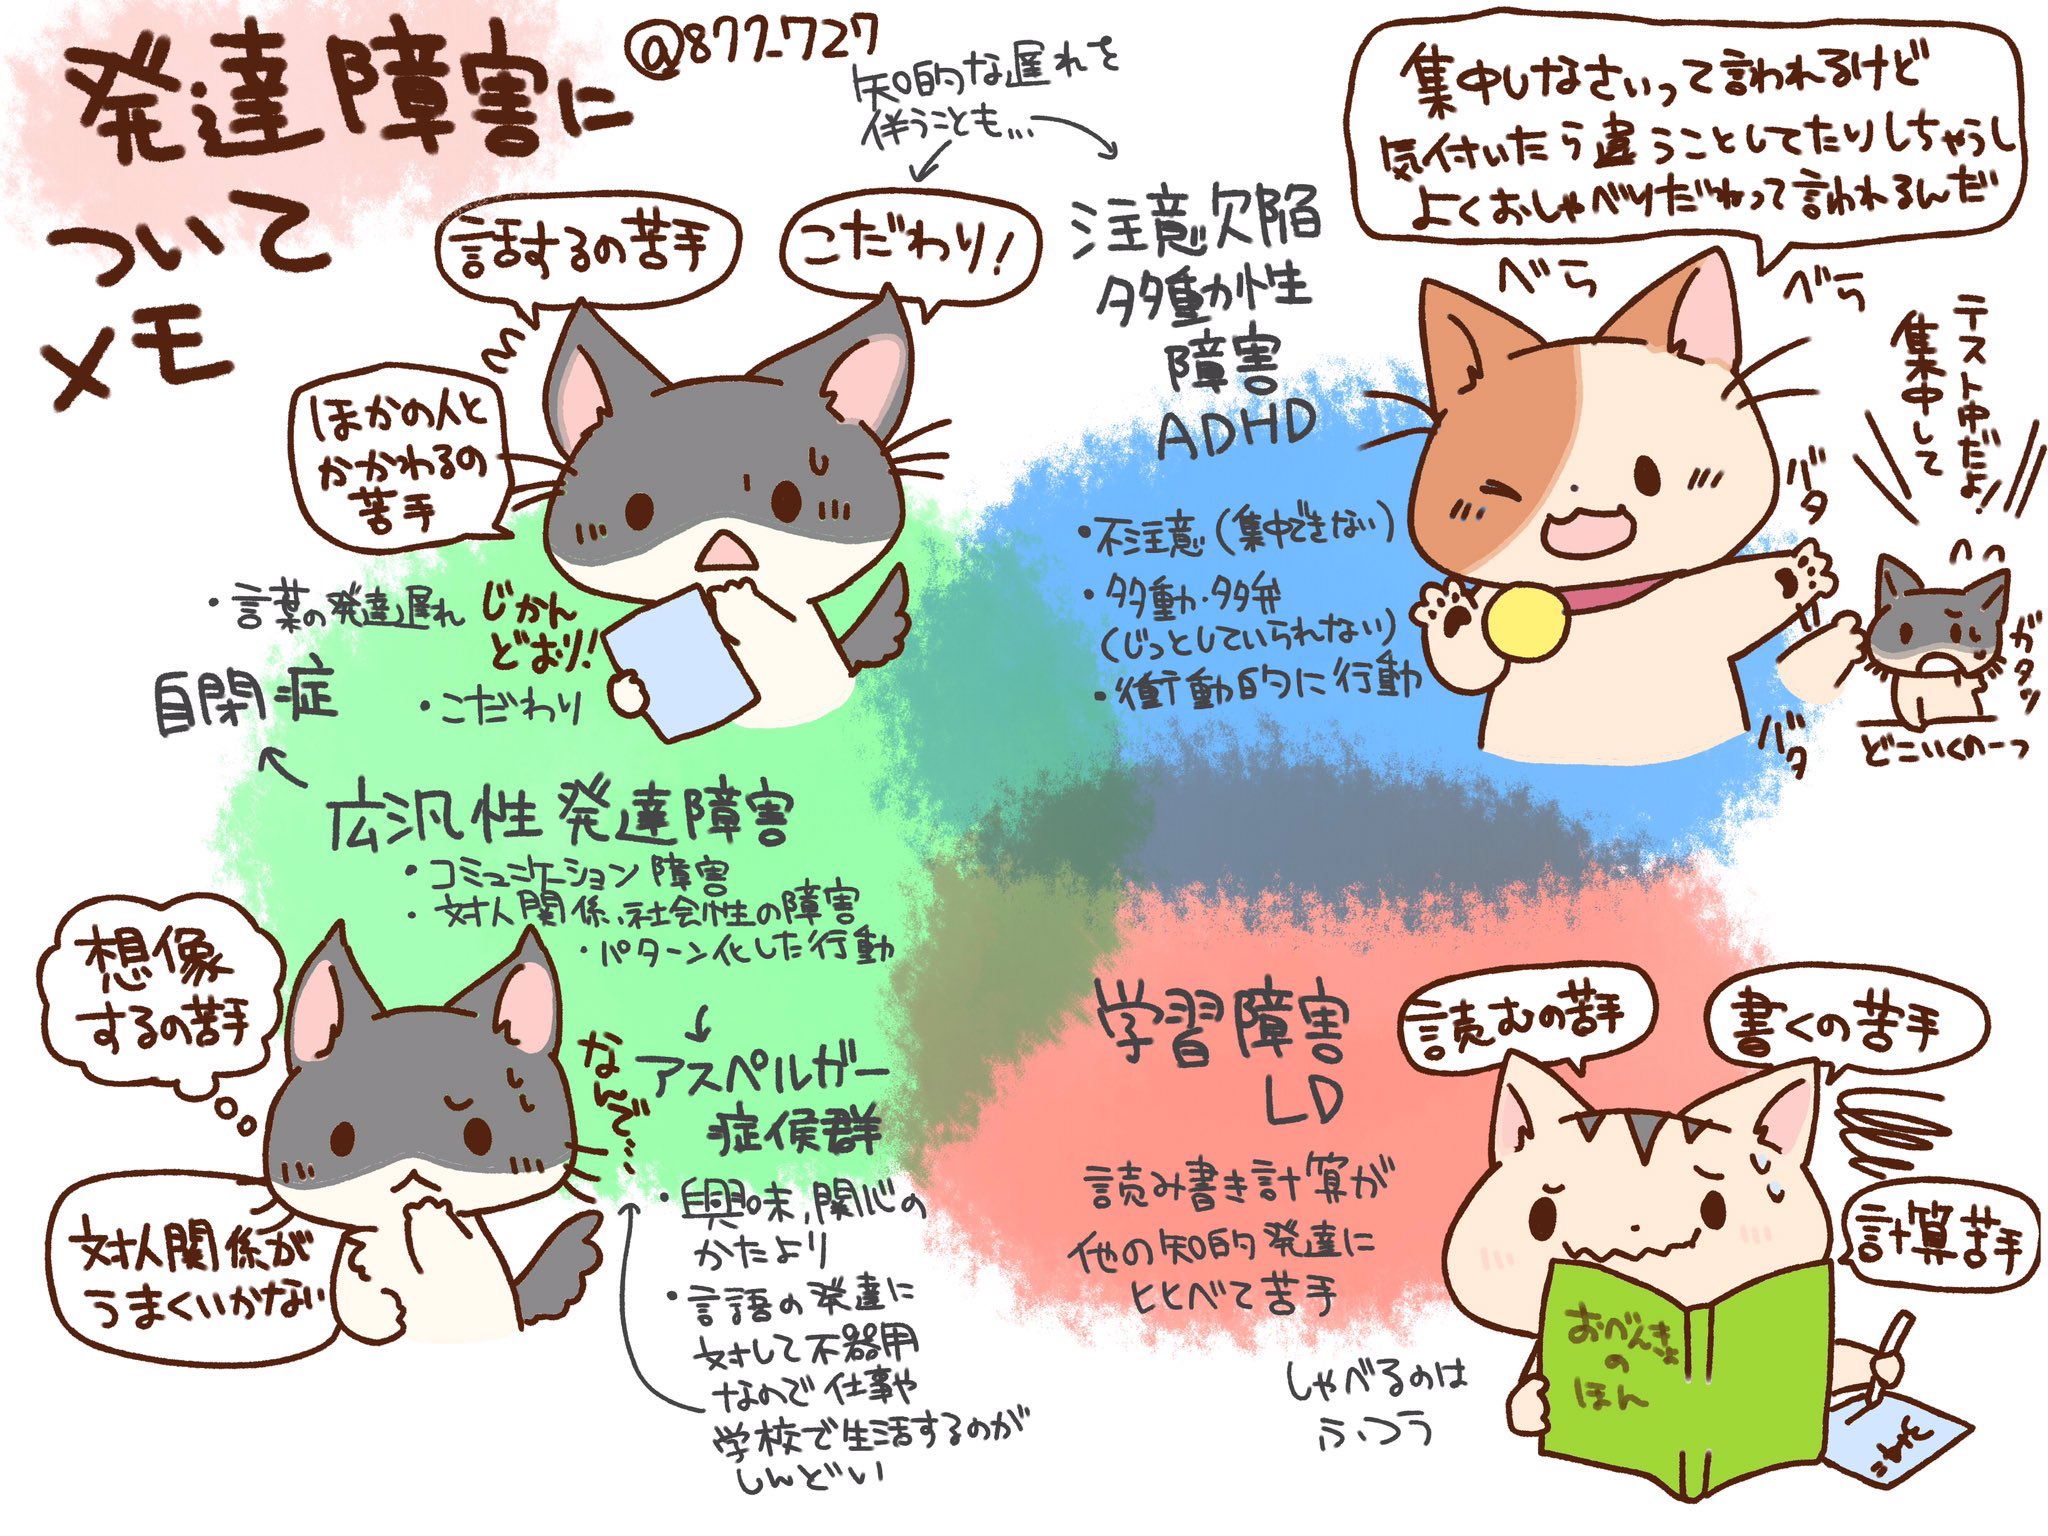 発達障害に
ついて
メモ
@877_727
知的な遅れを
伴うことも…
話すの苦手
こだわり!
ほかの人と
かかわるの
苦手
・言葉の発達遅れ
じかん
どおり!
・こだわり
自閉症
広汎性発達障害
・コミュニケーション障害
・対人関係、社会性の障害
・パターン化した行動
想像
するの苦手
対人関係が
うまくいかない
なんで…
アスペルガー
症候群
・興味、関心の
かたより
・言語の発達に
対して不器用
なので仕事や
学校で生活するのが
しんどい
注意欠陥
多動性
障害
ADHD
・不注意(集中できない)
・多動・多弁
(じっとしていられない)
・衝動的に行動
集中しなさいって言われるけど
気付いたら違うことしてたりしちゃうし
よくおしゃべりだねって言われるんだ
べら
べら
バタ
バタ
テスト中だよ!
集中して
ガタッ
どこいくのーっ
学習障害
LD
読み書き計算が
他の知的発達に
くらべて苦手
しゃべるのは
ふつう
読むの苦手
書くの苦手
計算苦手
おべんきょ
の
ほん